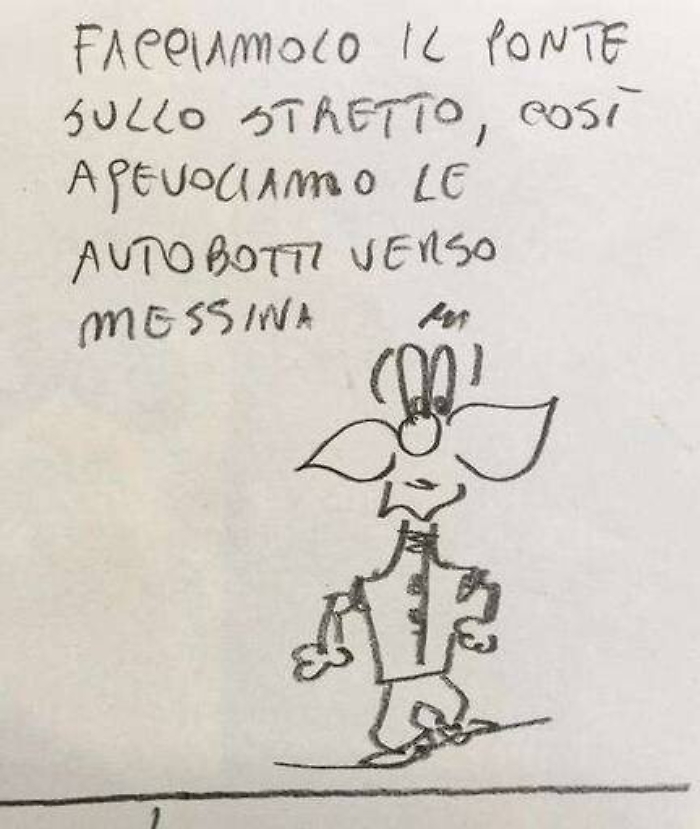 FACCIAMOLO IL PONTE
SULLO STRETTO, COSÌ
AGEVOLIAMO LE
AUTOBOTTI VERSO
MESSINA